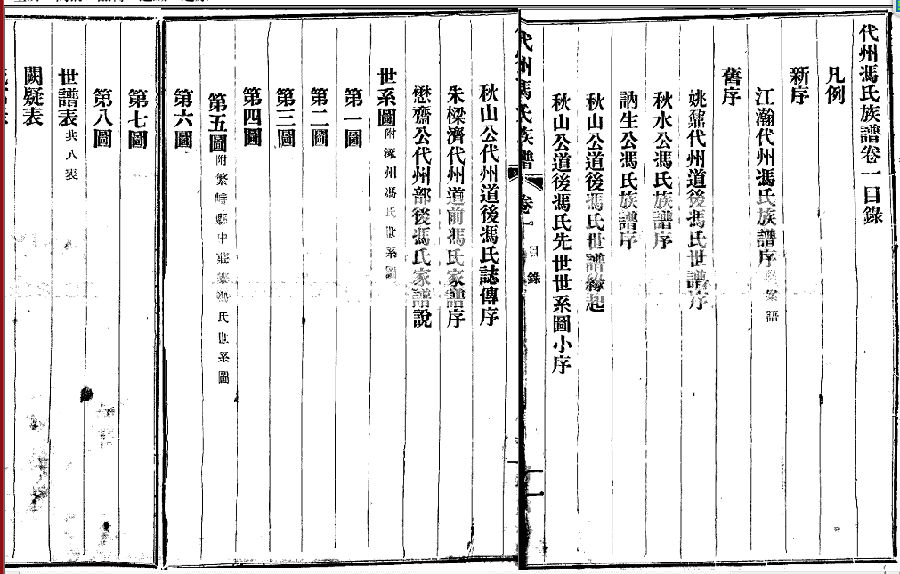 代州馮氏族譜卷一目錄
凡例
新序
江瀚代州馮氏族譜序
舊序
姚鼐代州道後馮氏世譜序
秋水公馮氏族譜序
訥生公馮氏族譜序
秋山公道後馮氏世譜緣起
秋山公道後馮氏先世世系圖小序
代州馮氏族譜 卷一 目錄
秋山公代州道後馮氏誌傳序
朱樑濟代州道前馮氏家譜序
懋齋公代州部後馮氏家譜說
世系圖附涿州馮氏世系圖
第一圖
第二圖
第三圖
第四圖
第五圖附繁峙縣中莊寨馮氏世系圖
第六圖
第七圖
第八圖
世譜表共八表
闕疑表